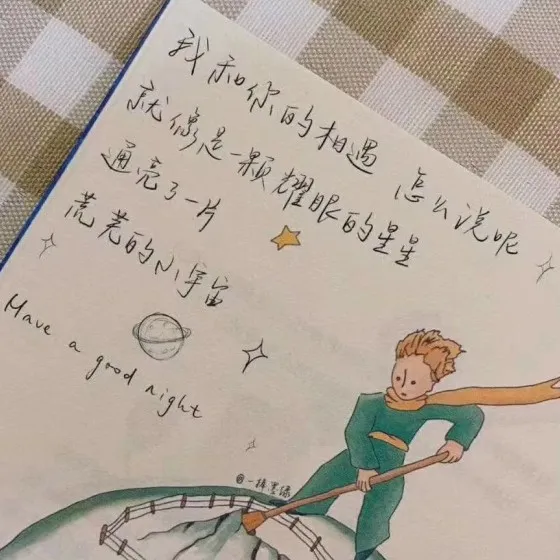 我和你的相遇 怎么说呢
就像是一颗耀眼的星星
通亮了一片
荒芜的小宇宙
Have a good night
@一棒墨绿